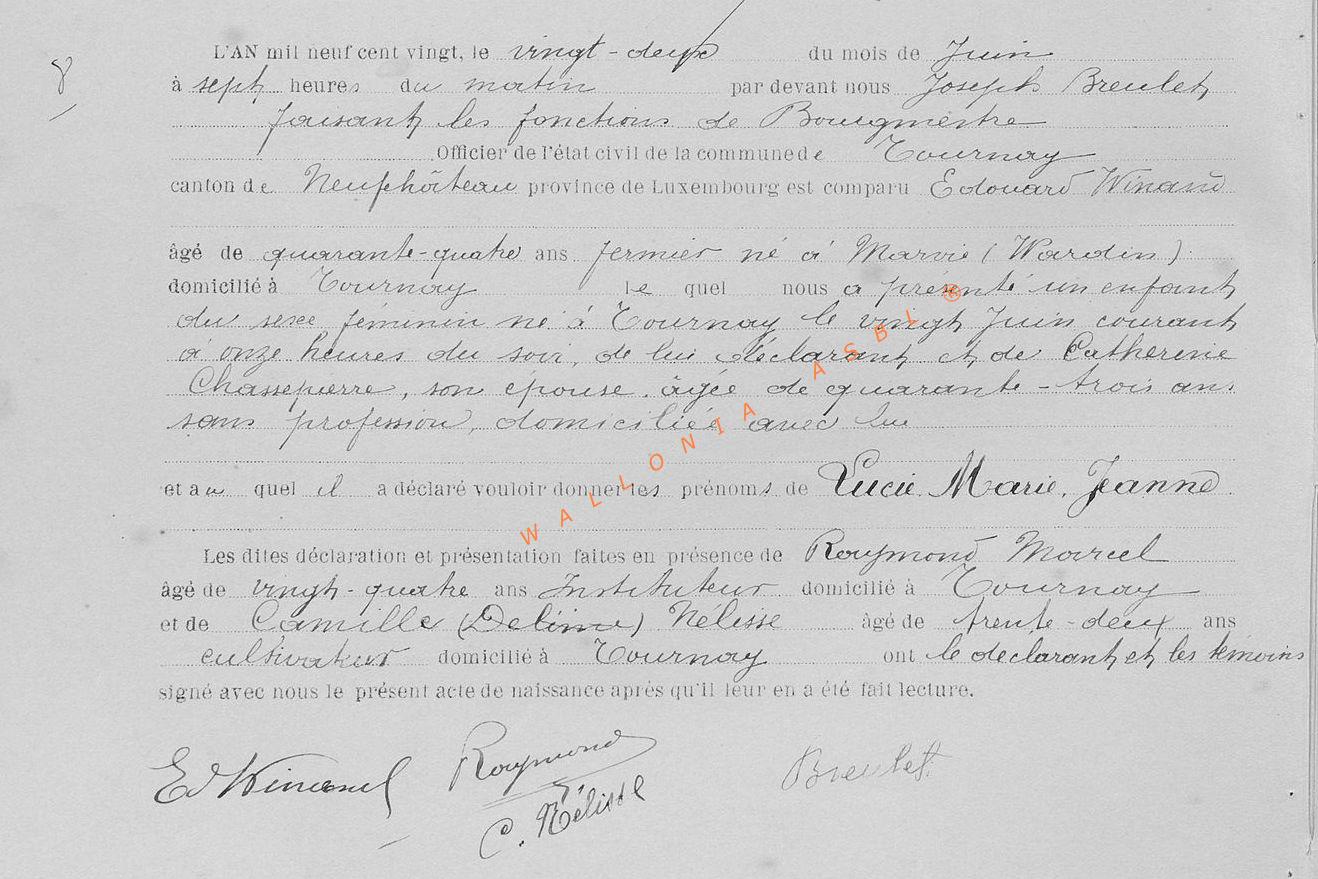 8
L'AN mil neuf cent vingt, le vingt-deux du mois de Juin
à sept heures du matin par devant nous Joseph Breulet,
faisant les fonctions de Bourgmestre
Officier de l'état civil de la commune de Tournay
canton de Neufchâteau province de Luxembourg est comparu Edouard Winand
âgé de quarante-quatre ans fermier né à Marvie (Wardin)
domicilié à Tournay le quel nous a présenté un enfant
du sexe féminin né à Tournay le vingt Juin courant
à onze heures du soir, de lui déclarant et de Catherine
Chassepierre, son épouse, âgée de quarante-trois ans
sans profession, domiciliée avec lui
et au quel il a déclaré vouloir donner les prénoms de Lucie, Marie, Jeanne
Les dites déclaration et présentation faites en présence de Raymond Marcel
âgé de vingt-quatre ans Instituteur domicilié à Tournay
et de Camille Nélisse âgé de trente-deux ans
cultivateur domicilié à Tournay ont le déclarant et les témoins
signé avec nous le présent acte de naissance après qu'il leur en a été fait lecture.
Ed Winand Raymond Breulet
C. Nélisse
WALLONIA ASBL ®